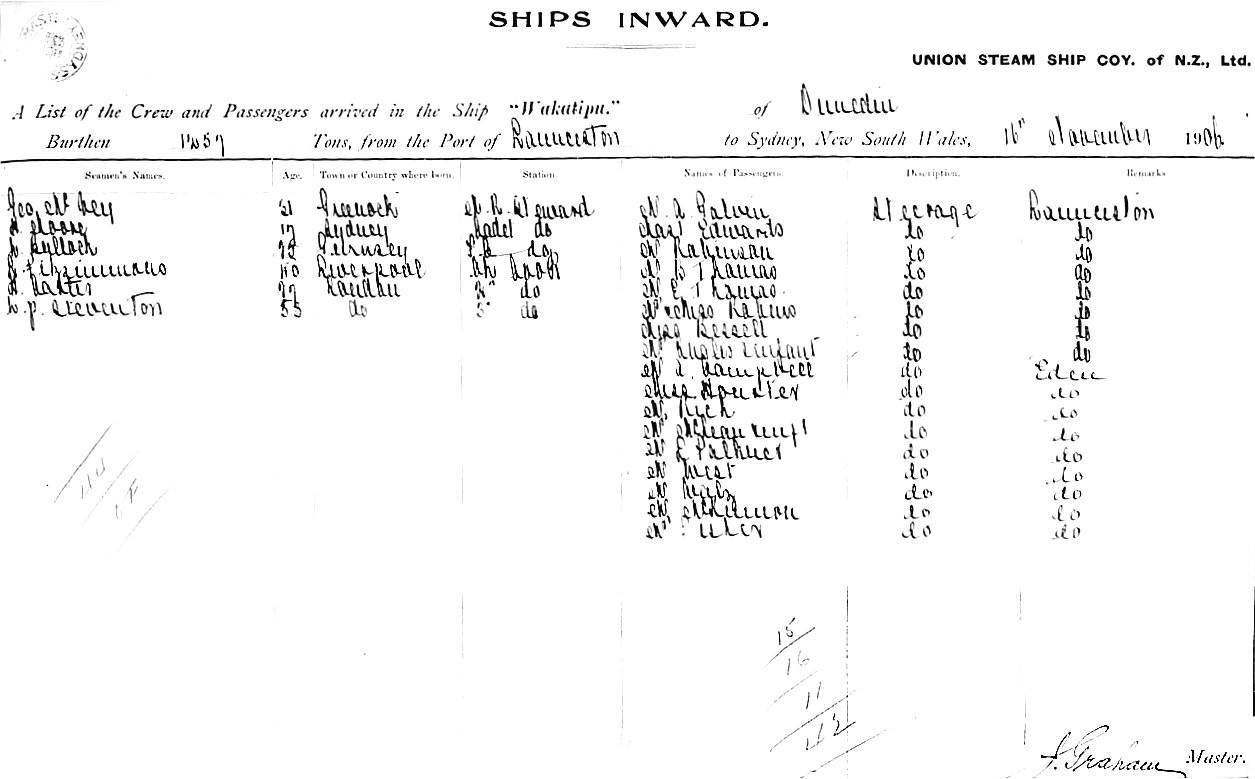 SHIPS INWARD.
UNION STEAM SHIP COY. of N.Z., Ltd.
A List of the Crew and Passengers arrived in the Ship "Wakatipu." of Dunedin
Burthen 1257 Tons, from the Port of Launceston to Sydney, New South Wales, 16th November 1906
Seamen's Names. Age. Town or Country where born. Station. Names of Passengers. Description. Remarks
Geo Mc Key 31 Greenock Steward Mr A Galvin Steerage Launceston
H Moore 17 Sydney Cadet do Edwards do do
Guernsey do Mr Robinson do do
Fitzsimmons 40 Liverpool Ch Cook Mr B Thomas do do
H. Baxter 27 London 2nd do Mr E Thomas do do
W. P. Steventon 53 do 3rd do Mr & Miss do do
Miss Bessell do do
Mrs & Infant do do
Mr A. Campbell do Eden
Miss Hunter do do
Mr Rich do do
Mr McLean do do
Mr E Palmer do do
Mr West do do
Mr do do
Mr McKinnon do do
Mr do do
44
15
16
11
42
J. Graham Master.